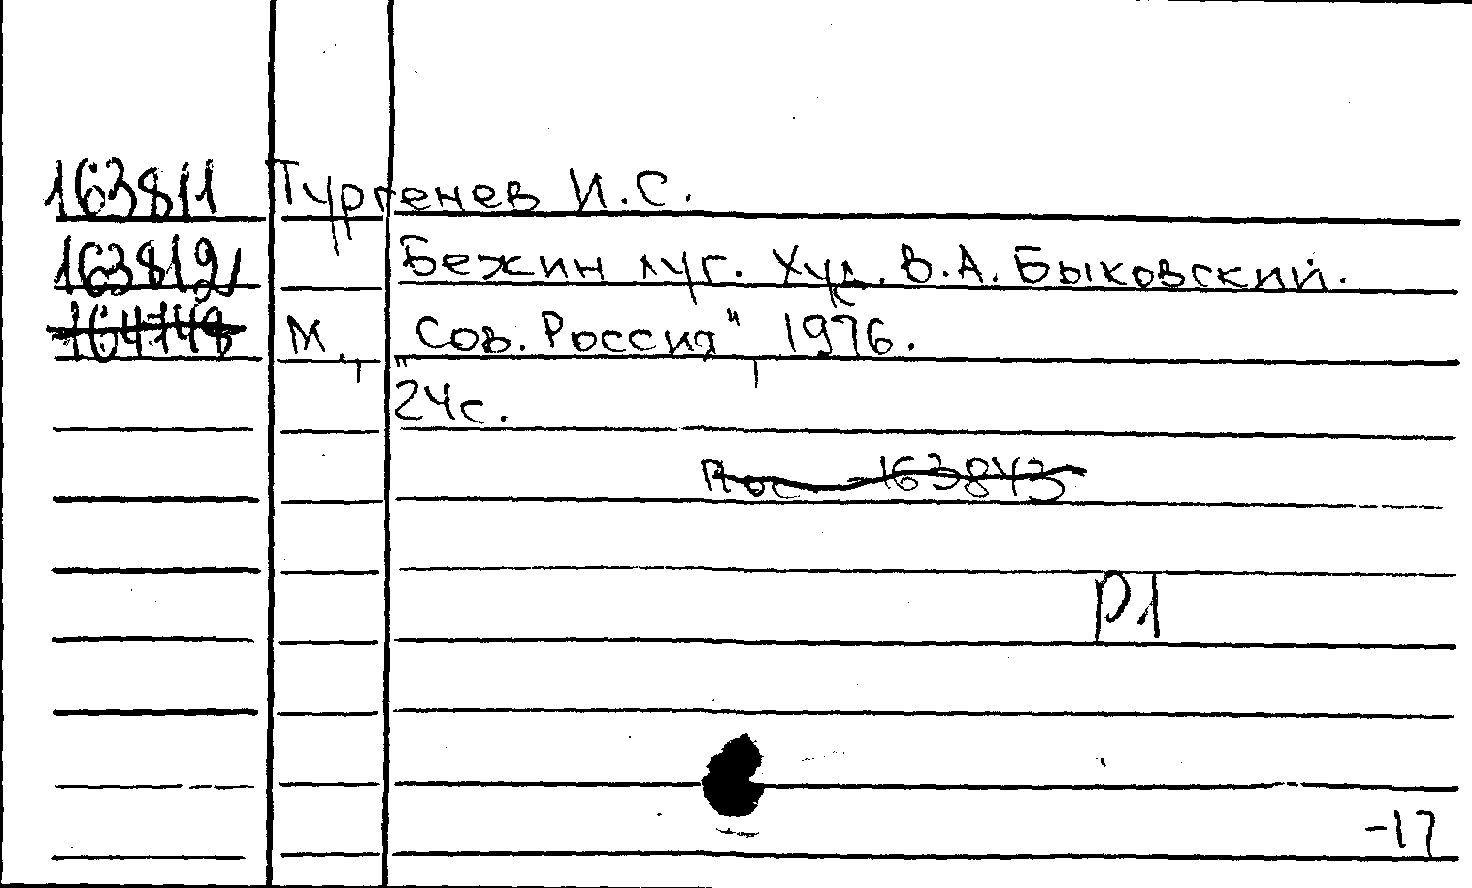 163811 Тургенев И.С.
163812 Бежин луг. Худ. В.А. Быковский.
164748 М., „Сов. Россия", 1976.
24с.
163843
Р1
-17